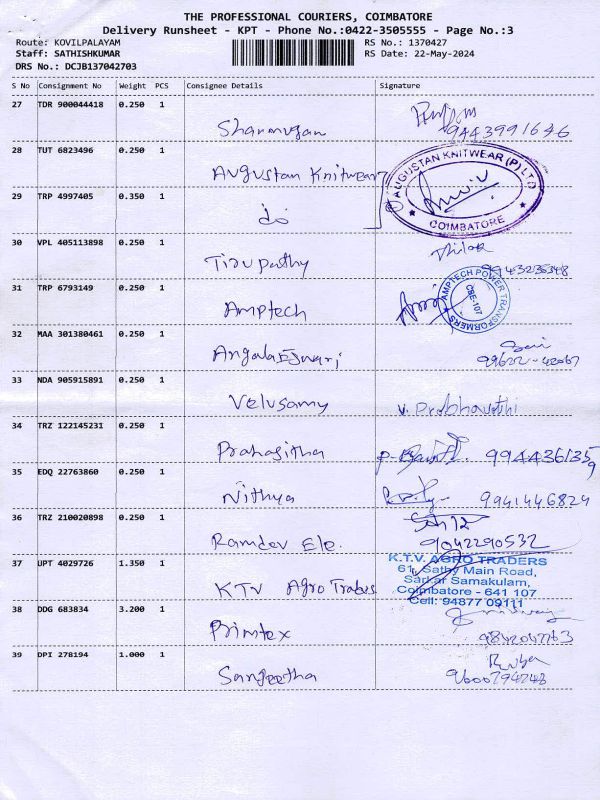 THE PROFESSIONAL COURIERS, COIMBATORE
Delivery Runsheet - KPT - Phone No.:0422-3505555 - Page No.:3
Route: KOVILPALAYAM
Staff: SATHISHKUMAR
DRS No.: DCJB137042703
RS No.: 1370427
RS Date: 22-May-2024
S No Consignment No Weight PCS Consignee Details Signature
27 TDR 900044418 0.250 1
Shanmugan
9443991646
28 TUT 6823496 0.250 1
Augustan Knitwear
AUGUSTAN KNITWEAR (P) LTD
COIMBATORE
29 TRP 4997405 0.350 1
do
30 VPL 405113898 0.250 1
Tirupathy
Thilak
9943236348
31 TRP 6793149 0.250 1
Amptech
AMPTECH POWER TRANSFORMERS
CBE-107
32 MAA 301380461 0.250 1
Angala Eswari
99622-42067
33 NDA 905915891 0.250 1
Velusamy
V. Prabhavathi
34 TRZ 122145231 0.250 1
Prahasitha
9944361359
35 EDQ 22763860 0.250 1
Nithya
9941446824
36 TRZ 210020898 0.250 1
Ramdev Ele.
9042290532
37 UPT 4029726 1.350 1
KTV Agro Trabes
K.T.V. AGRO TRADERS
61, Sathy Main Road,
Sarkar Samakulam,
Coimbatore - 641 107
Cell: 94877 09111
38 DDG 683834 3.200 1
Primtex
9842047763
39 DPI 278194 1.000 1
Sangeetha
9600794248